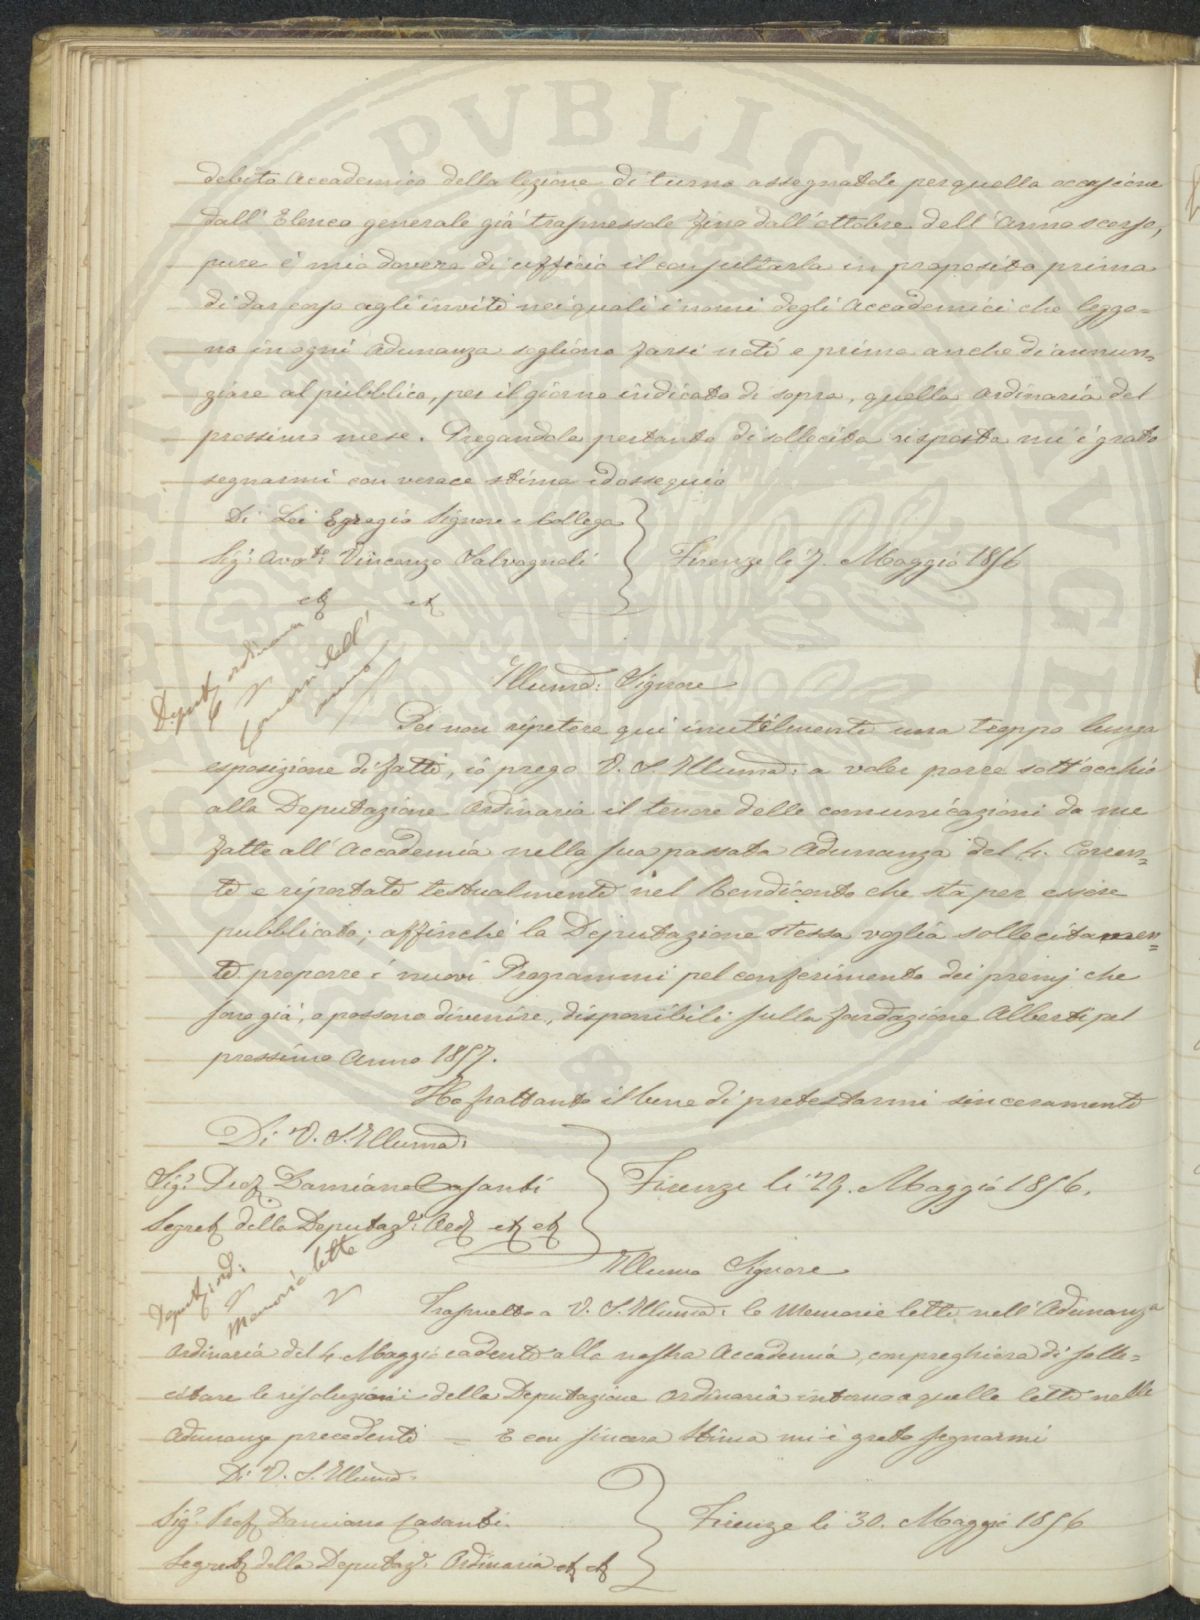 debito Accademico della lezione di turno assegnatole per quella occasione
dall'Elenco generale già trasmessole fino dall'ottobre dell'anno scorso,
pure è mio dovere di ufficio il consultarla in proposito prima
di dar corso agli inviti nei quali i nomi degli Accademici che leggo=
no in ogni Adunanza sogliono farsi noti e prima anche di annun=
ziare al pubblico, per il giorno indicato di sopra, quella ordinaria del
prossimo mese. Pregandola pertanto di sollecita risposta mi è grato
segnarmi con verace stima ed ossequio
Di Lei Egregio Signore e Collega
Sig: Avv.to Vincenzo Salvagnoli
Firenze li 7. Maggio 1856
Deput. ordinaria
Illumo: Signore
Per non ripetere qui inutilmente una troppo lunga
esposizione di fatti, io prego V. S. Illuma: a voler porre sott'occhio
alla Deputazione Ordinaria il tenore delle comunicazioni da me
fatte all'Accademia nella sua passata Adunanza del 4. Corren=
te e riportate testualmente nel Rendiconto che sta per essere
pubblicato; affinché la Deputazione stessa voglia sollecitamen=
te proporre i nuovi Programmi pel conferimento dei premj che
sono già, o possono divenire, disponibili sulla fondazione Alberti pel
prossimo Anno 1857.
Ho frattanto il bene di protestarmi sinceramente
Di V. S. Illuma:
Sig: Prof. Damiano Casanti
Segret. della Deputaz: Ord. etc etc
Firenze li 29. Maggio 1856.
Deputz. ord:
Memorie lette
Illumo Signore
Trasmetto a V. S. Illuma: le Memorie lette nell'Adunanza
Ordinaria del 4. Maggio cadente alla nostra Accademia, con preghiera di solle=
citare le risoluzioni della Deputazione Ordinaria intorno a quelle lette nelle
Adunanze precedenti = E con sincera stima mi è grato segnarmi
Di V. S. Illuma:
Sig: Prof. Damiano Casanti
Segret. della Deputaz: Ordinaria etc etc
Firenze li 30. Maggio 1856